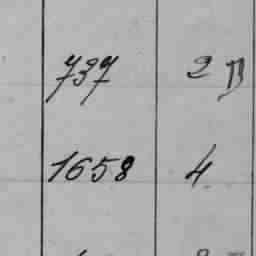 737 2 П
1658 4